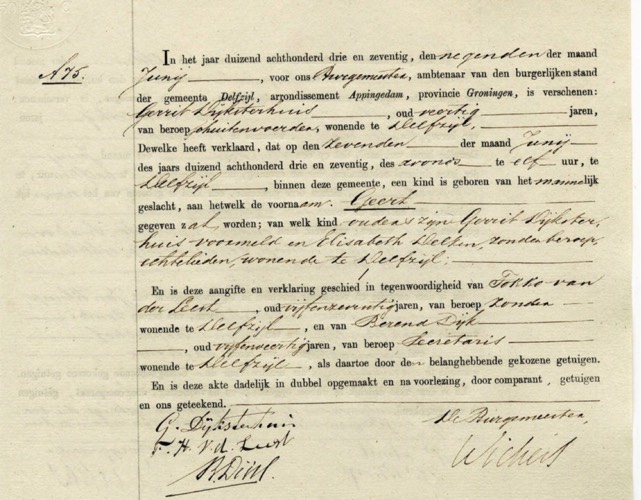 A 75.
In het jaar duizend achthonderd drie en zeventig, den negenden der maand
Junij, voor ons Burgemeester, ambtenaar van den burgerlijken stand
der gemeente Delfzijl, arrondissement Appingedam, provincie Groningen, is verschenen:
Gerrit Dijksterhuis, oud veertig jaren,
van beroep schuitenvoerder, wonende te Delfzijl,
Dewelke heeft verklaard, dat op den zevenden der maand Junij
des jaars duizend achthonderd drie en zeventig, des avonds te elf uur, te
Delfzijl, binnen deze gemeente, een kind is geboren van het mannelijk
geslacht, aan hetwelk de voornaam Geert
gegeven zal worden; van welk kind ouders zijn Gerrit Dijkster,
huis voormeld en Elisabeth, zonder beroep,
echtelieden, wonende te Delfzijl;
En is deze aangifte en verklaring geschied in tegenwoordigheid van Fokko van
der Leest, oud vijfenzeventig jaren, van beroep zonder
wonende te Delfzijl, en van Berend Dijk
, oud vijfenveertig jaren, van beroep Secretaris
wonende te Delfzijl, als daartoe door den belanghebbende gekozene getuigen.
En is deze akte dadelijk in dubbel opgemaakt en na voorlezing, door comparant, getuigen
en ons geteekend.
G. Dijksterhuis
F. H. v. d. Leest
B. Dijk
De Burgemeester,